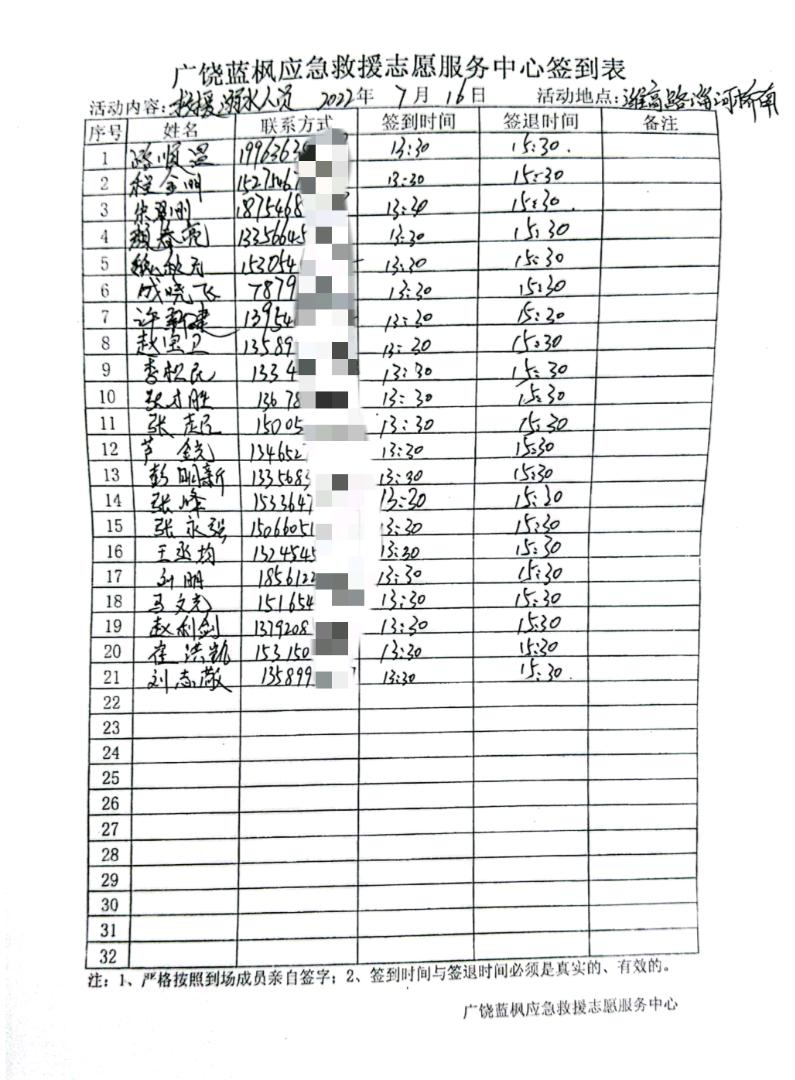 广饶蓝枫应急救援志愿服务中心签到表
活动内容:救援溺水人员 2022年 7月 16日 活动地点:潍高路淄河桥南
序号 姓名 联系方式 签到时间 签退时间 备注
1 19963636 13:30 15:30.
2 程金明 1527546 13:30 15:30
3 1875468 13:30 15:30
4 颜春亮 13356645 13:30 15:30
5 153054 13:30 15:30
6 成晓飞 7879 13:30 15:30
7 许新建 13954 13:30 15:30
8 赵国卫 13589 13:30 15:30
9 李松民 1334 13:30 15:30
10 张才胜 13678 13:30 15:30
11 张志民 15005 13:30 15:30
12 芦 锐 1346527 13:30 15:30
13 彭明新 1335683 13:30 15:30
14 张峰 1533647 13:30 15:30
15 张永强 15066051 13:30 15:30
16 王丞均 1324545 13:30 15:30
17 刘明 1856122 13:30 15:30
18 马文光 151654 13:30 15:30
19 赵利剑 1379208 13:30 15:30
20 崔洪凯 153150 13:30 15:30
21 刘志敬 135899 13:30 15:30.
22
23
24
25
26
27
28
29
30
31
32
注:1、严格按照到场成员亲自签字;2、签到时间与签退时间必须是真实的、有效的。
广饶蓝枫应急救援志愿服务中心